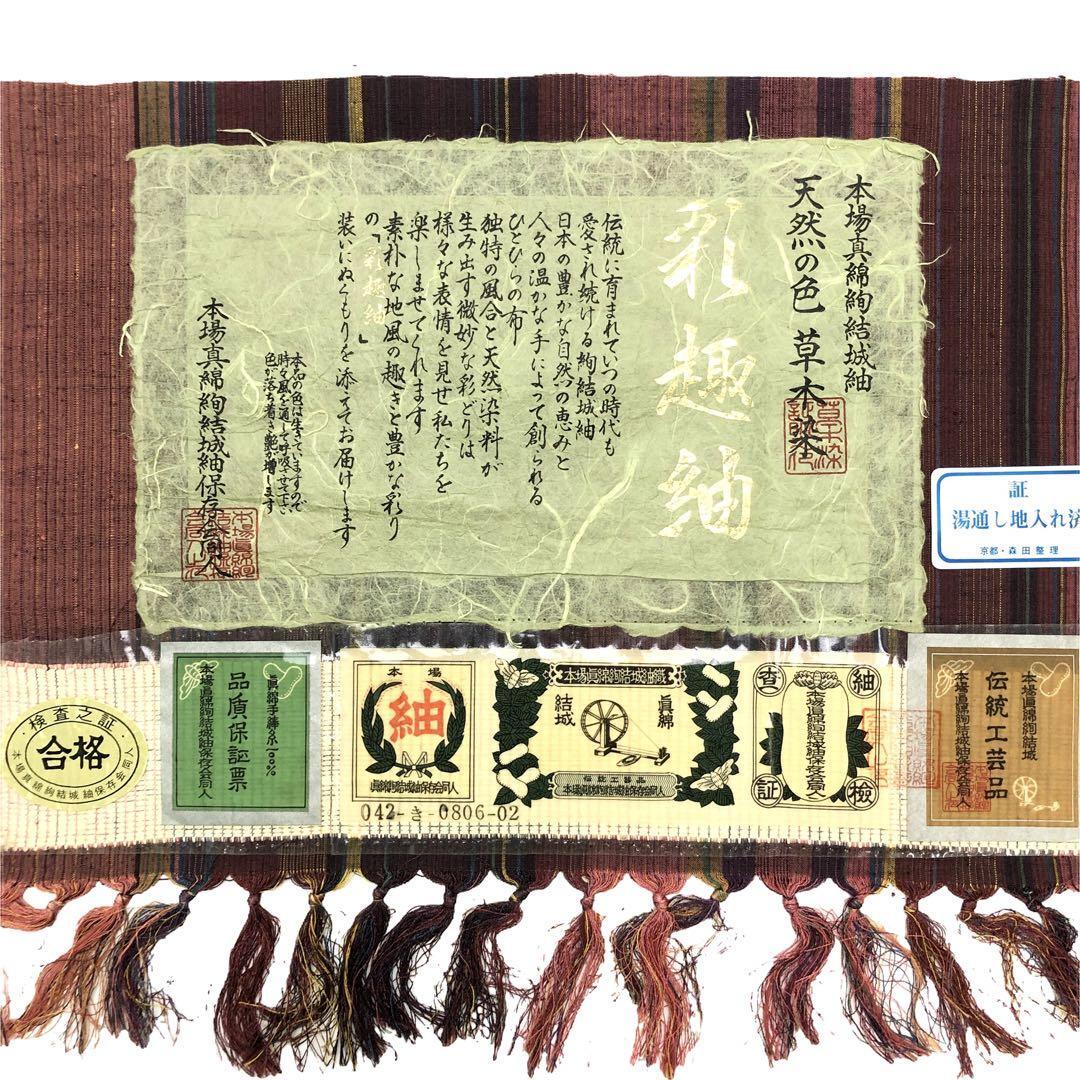 本場真綿絢結城紬
天然の色 草木染
彩趣紬
伝統に育まれていつの時代も
愛され続ける絢結城紬
日本の豊かな自然の恵みと
人々の温かな手によって創られる
ひとひらの布
独特の風合と天然染料が
生み出す微妙な彩どりは
様々な表情を見せ私たちを
楽しませてくれます
素朴な地風の趣きと豊かな彩り
の「彩趣紬」
装いにぬくもりを添えてお届けします
本品の色は生きていますので
時々風を通して呼吸させて下さい
色が落ち着き艶が増します
本場真綿絢結城紬保存会同人
証
湯通し地入れ済
京都・森田整理
検査之証
合格
本場真綿絢結城紬保存会同人
眞綿手紬糸100%
品質保証票
本場眞綿絢結城紬保存会同人
本場
紬
眞綿絢結城紬保存会同人
042-き-0806-02
本場眞綿絢結城紬織
眞綿
結城
伝統工芸品
本場眞綿絢結城紬保存会同人
紬
査
検
証
本場眞綿絢結城紬保存会同人
本場眞綿絢結城
伝統工芸品
本場眞綿絢結城紬保存会同人